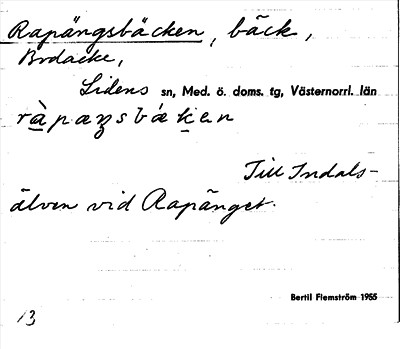 Rapängsbäcken, bäck,
Bodacke,
Lidens sn, Med. ö. doms. tg, Västernorrl. län
ràpæŋsbæken
Till Indals-
älven vid Rapänget.
Bertil Flemström 1955
13